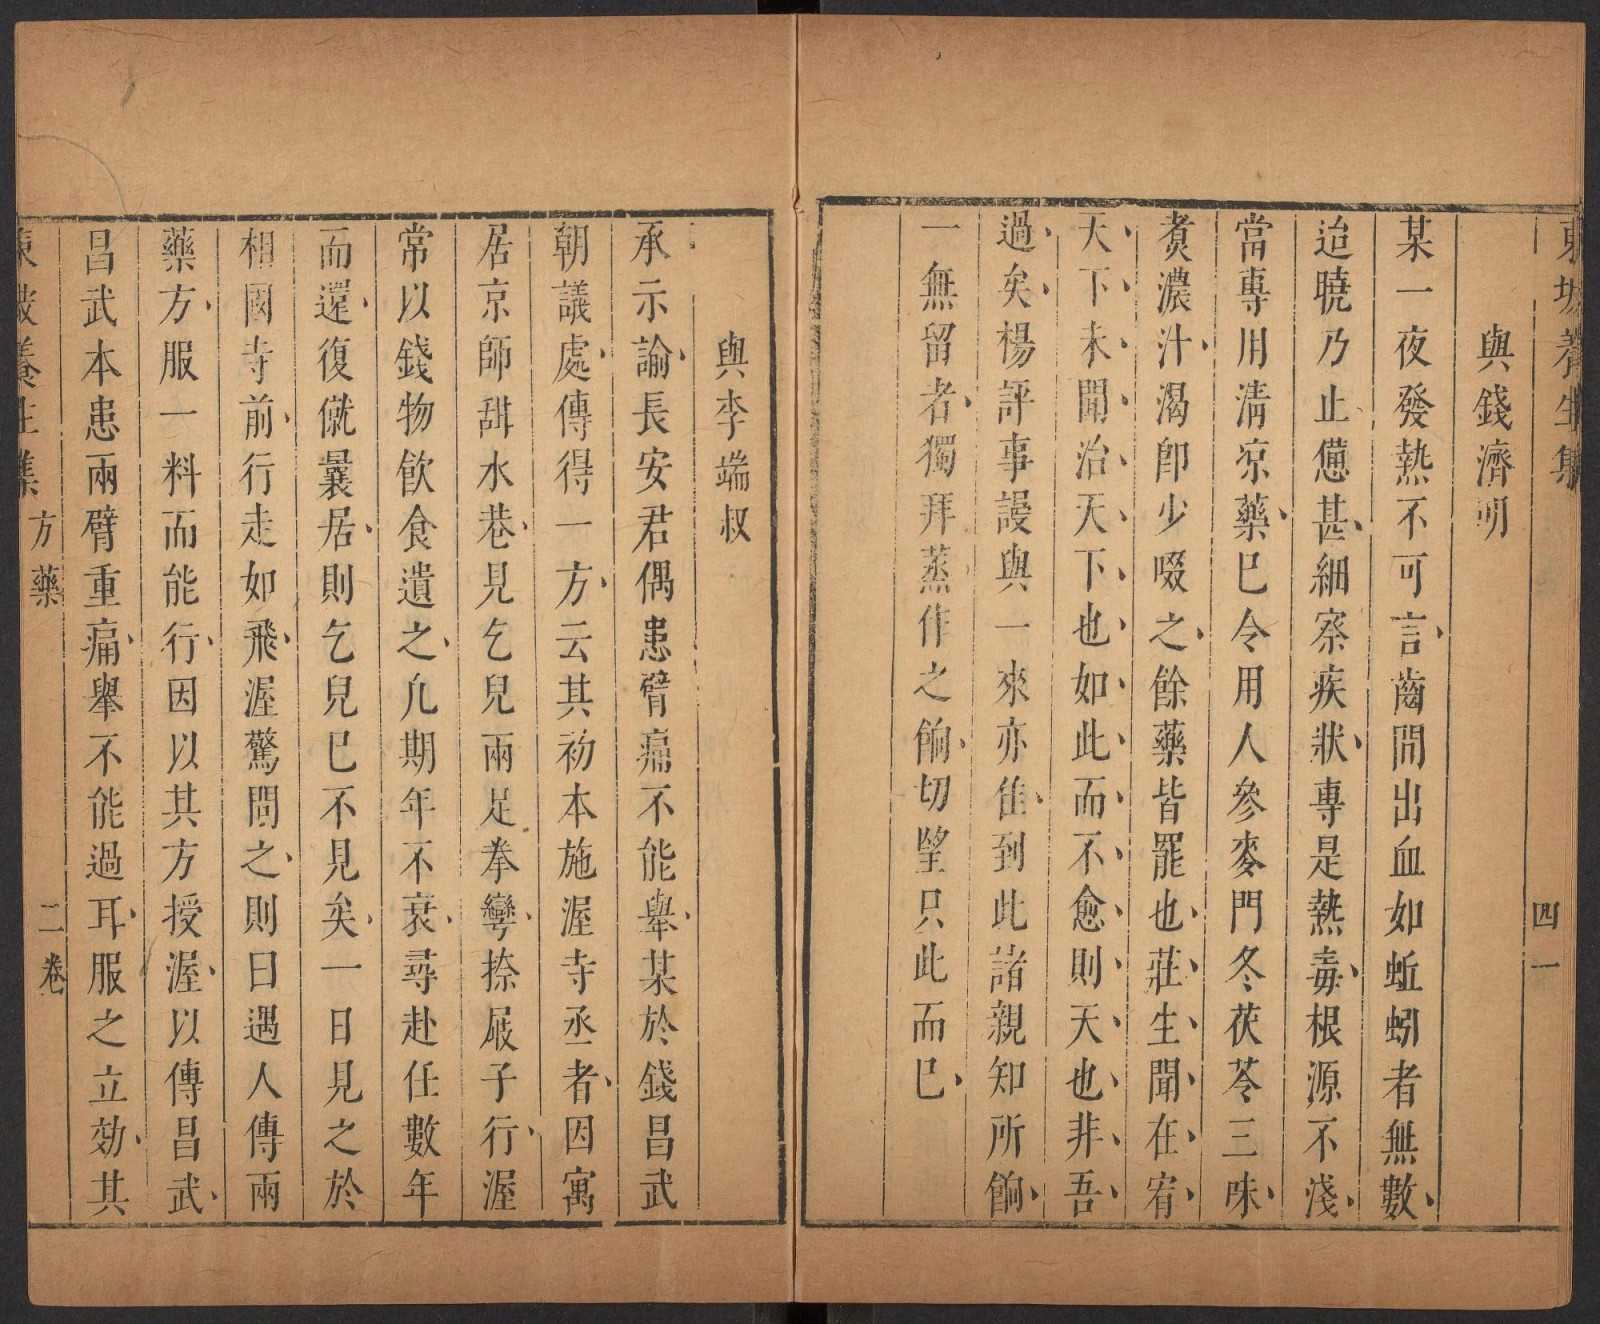 東坡養生集
四一
與錢濟明
某一夜發熱不可言齒間出血如蚯蚓者無數
迨曉乃止憊甚細察疾狀專是熱毒根源不淺
當專用清凉藥已令用人參麥門冬茯苓三味
煑濃汁渴卽少啜之餘藥皆罷也莊生聞在宥
天下未聞治天下也如此而不愈則天也非吾
過矣楊評事謾與一來亦佳到此諸親知所餉
一無留者獨拜蒸作之餉切望只此而已
與李端叔
承示諭長安君偶患臂痛不能舉某於錢昌武
朝議處傳得一方云其初本施渥寺丞者因寓
居京師甜水巷見乞兒兩足拳彎捺屐子行渥
常以錢物飲食遺之凢期年不衰尋赴任數年
而還復僦曩居則乞兒已不見矣一日見之於
相國寺前行走如飛渥驚問之則曰遇人傳兩
藥方服一料而能行因以其方授渥以傳昌武
昌武本患兩臂重痛舉不能過耳服之立効其
東坡養生集
方藥
二卷